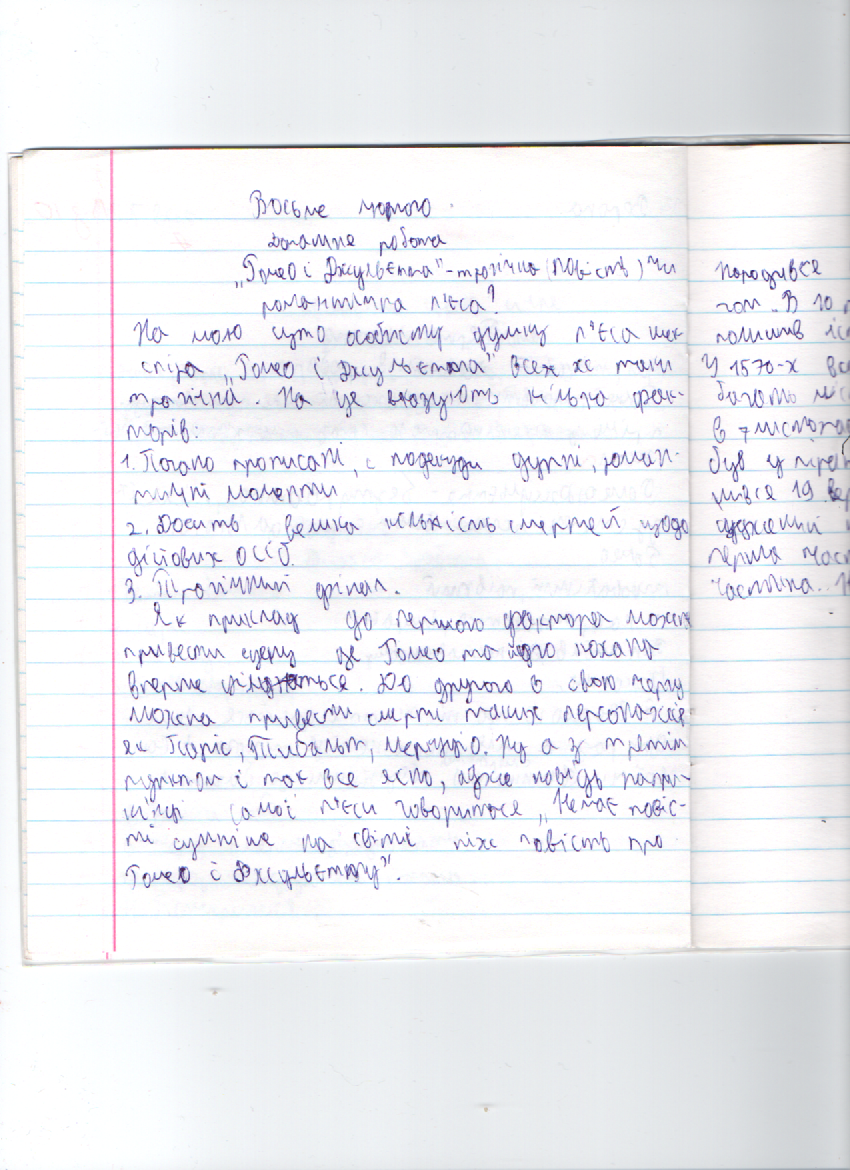 Восьме лютого.
Домашня робота
„Ромео і Джульєтта"-трагічна (повість) чи
романтична п'єса?
На мою суто особисту думку п'єса шек-
спіра „Ромео і Джульєтта" всеж же таки
трагічна. На це вказують кілька фак-
торів:
1. Погано прописані, є подекуди дурні, роман-
тичні моменти
2. Досить велика кількість смертей щодо
дійових осіб.
3. Трагічний фінал.
Як приклад до першого фактора можна
привести сцену де Ромео та його кохана
вперше цілуються. До другого в свою чергу
можна привести смерті таких персонажів
як Паріс, Тибальт, Меркуціо. Ну а з третім
пунктом і так все ясно, адже навідь напри-
кінці самої п'єси говориться „Немає повіс-
ті сумніше на світі ніж повість про
Ромео і Джульєтту".
народився
гом. В 10
полишив
У 1570-х
багать
в 7 листопад
був у
19 вер
перша част
частина.